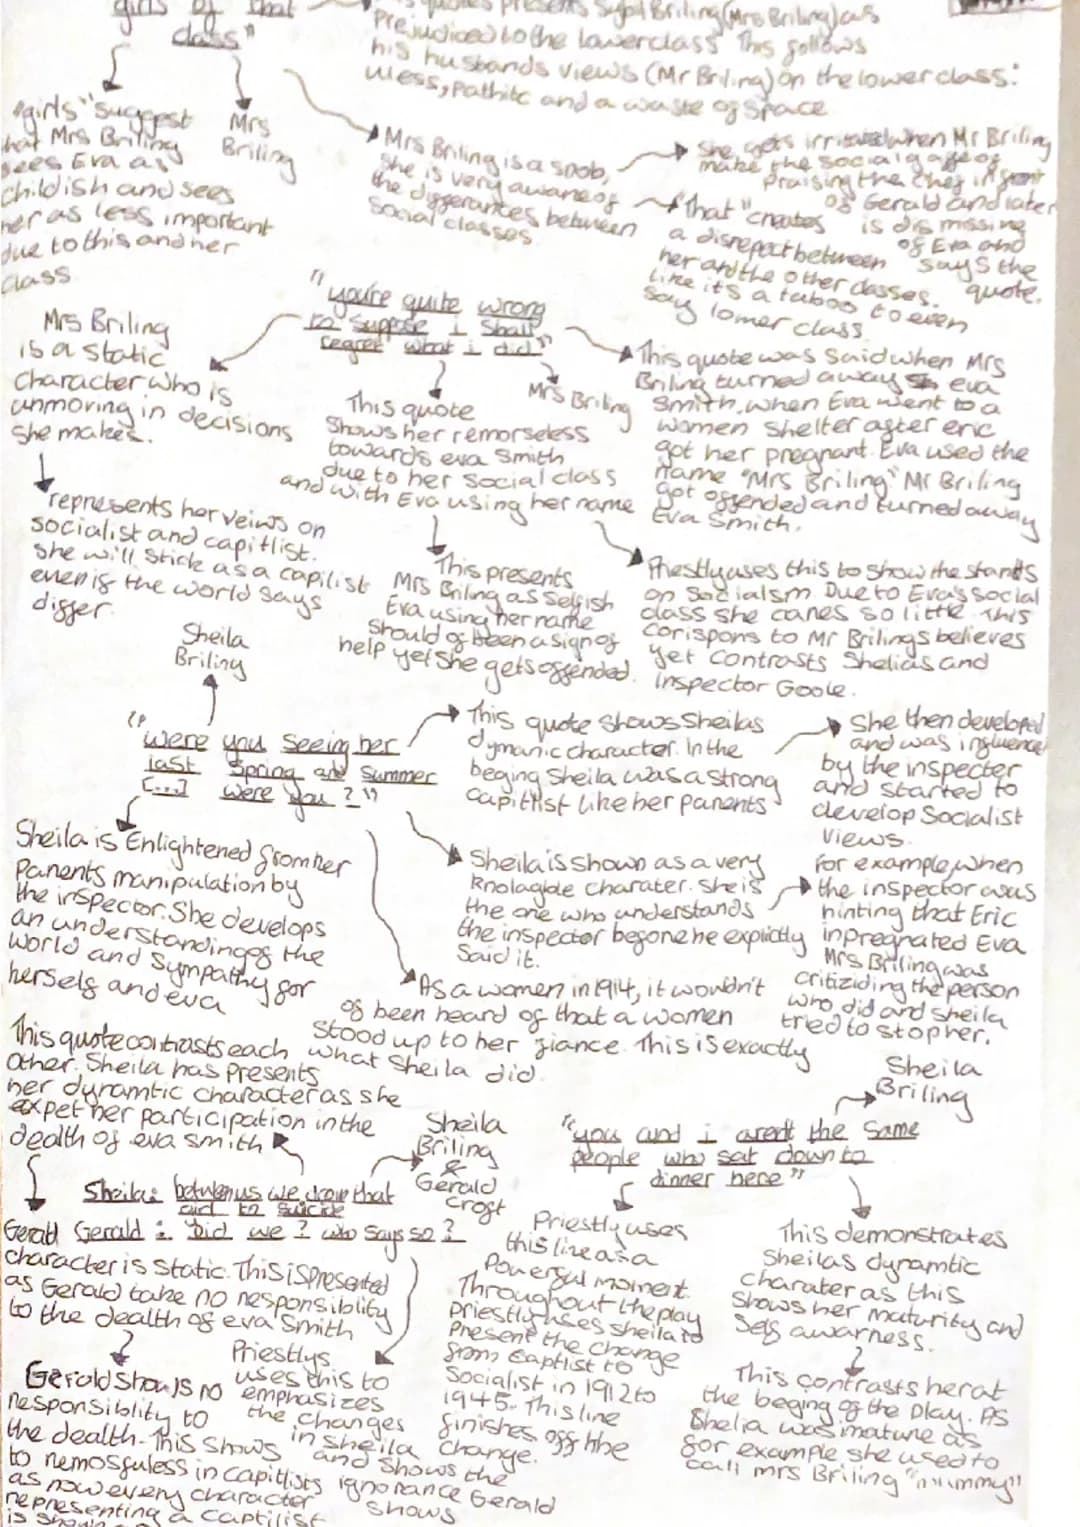 girls of that
class"
quotes presents Sybil Briling (Mrs Briling) as
Prejudiced to the lowerclass This follows
his husbands views (Mr Briling) on the lower class:
uless, pathitc and a waste of space
"girls" suggest
that Mrs Briling
sees Eva as
childish and sees
her as less important
due to this and her
class
Mrs
Briling
Mrs Briling is a snob,
she is very aware of
the differances between
Social classes
She gets irritated when Mr Briling
make the social gaffe of
Praising the chef infront
of Gerald and later
is dismissing
of Eva and
says the
quote.
"That" creates
a disrepect between
her and the other classes.
like it's a taboo to even
say lower class
"you're quite wrong
to suppose i shall
regret what i did"
Mrs Briling
Mrs Briling
is a static
character who is
unmoving in decisions
she makes.
represents her veiws on
socialist and capitlist.
she will stick as a capilist
even if the world says
differ.
This quote
Shows her remorseless
towards eva Smith
due to her social class
and with Eva using her name
This presents
Mrs Briling as selfish
Eva using her name
should of been a sign of
help yet she gets offended.
This quote was said when Mrs
Briling turned away eva
Smith, when Eva went to a
women shelter after eric
got her pregnant. Eva used the
name "Mrs Briling" Mr Briling
got offended and turned away
Eva Smith.
Priestly uses this to show the
on socialsm. Due to Eva's social
class she cares so little. This
corispons to Mr Brilings believes
yet contrasts Shelias and
Inspector Goole.
Sheila
Briling
"were you seeing her
last spring and summer
[...] were you?"
This quote shows Sheilas
dymanic character. In the
beging Sheila was a strong
capitlist like her parents
She then developed
and was influence
by the inspecter
and started to
develop Socialist
views.
Sheila is Enlightened from her
Parents manipulation by
the inspector. She develops
an understanding of the
world and sympathy for
herself and eva
Sheila is shown as a very
Knolagble charater. she is
the one who understands
the inspector before he explictly
Said it.
For example, when
the inspector was
hinting that Eric
inpregnated Eva
Mrs Briling was
critiziding the person
who did and sheila
tried to stop her.
As a women in 1914, it wouldn't
of been heard of that a women
stood up to her fiance. This is exactly
what Sheila did.
This quote contrasts each
other. Sheila has presents
her dyramtic character as she
expet her participation in the
dealth of eva smith
Sheila
Briling
&
Gerald
Croft
Sheila: between us we drove that
to suicide
Gerald: Did we? who says so?
Gerald
character is static. This is presented
as Gerald take no responsiblity
to the dealth of eva Smith
Gerald shows no
responsiblity to
the dealth. This shows
to remosfuless in capitlists
as now every character
representing a captilist
Priestlys
uses this to
emphasizes
the changes
in sheila
and shows the
ignorance Gerald
shows
Sheila
Briling
"you and i aren't the same
people who sat down to
dinner here"
Priestly uses
this line as a
Powerful moment.
Throughout the play
priestly uses sheila to
Present the change
from Captist to
Socialist in 1912 to
1945. This line
finishes off the
change.
This demonstrates
Sheilas dynamtic
charater as this
shows her maturity and
self awarness.
This contrasts her at
the beging of the play. As
Shelia was mature as
for example she used to
call mrs Briling "mummy"